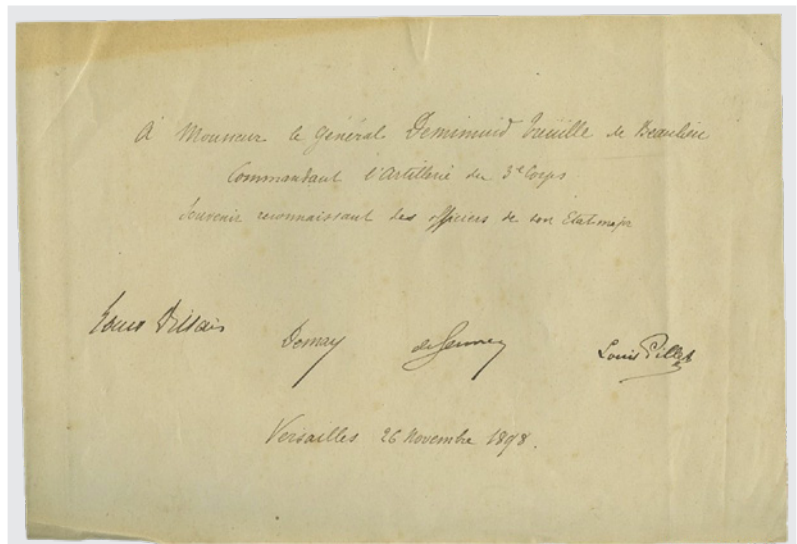 À Monsieur le Général Deminuid Treuille de Beaulieu
Commandant l'Artillerie du 3e Corps
Souvenir reconnaissant des officiers de son Etat-major
Demay Louis Pillet
Versailles 26 Novembre 1898.